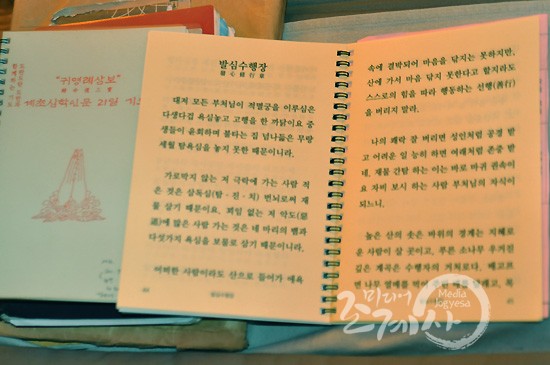 "귀명례삼보"
개초심학신문 21일 기도
발심수행장
發心修行章
대저 모든 부처님이 적멸궁을 이루심은
다생다겁 욕심놓고 고행을 한 까닭이요 중
생들이 윤회하며 불타는 집 넘나듦은 무량
세월 탐욕심을 놓지 못한 때문이니라.
가로막지 않는 저 극락에 가는 사람 적
은 것은 삼독심(탐·진·치) 번뇌로써 재
물 삼기 때문이요, 꾀임 없는 저 악도(惡
道)에 많은 사람 가는 것은 네 마리의 뱀과
다섯가지 욕심을 보물로 삼기 때문이니라.
어떠한 사람이라도 산으로 들어가 애욕
속에 결박되어 마음을 닦지는 못하지만,
산에 가서 마음 닦지 못한다고 할지라도
스스로의 힘을 따라 행동하는 선행(善行)
을 버리지 말라.
나의 쾌락 잘 버리면 성인처럼 공경 받
고 어려운 일 능히 하면 여래처럼 존중 받
네. 재물 간탐 하는 이는 바로 마귀 권속이
요 자비 보시 하는 사람 부처님의 자식이
되느니.
높은 산의 솟은 바위의 경계는 지혜로
운 사람이 살 곳이고, 푸른 소나무 우거진
깊은 계곡은 수행자의 거처로다. 배고프
면 나무 열매를 먹어 주린 배를 달래고, 목
미디어
조계사
Media
Jogyesa